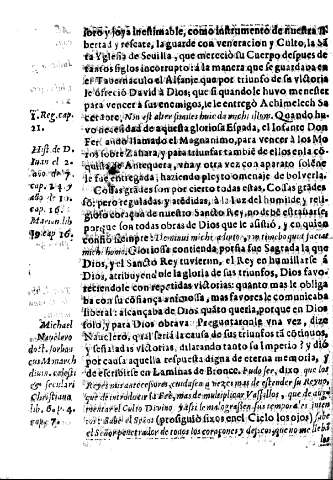 soro y Joya inestimable, como instrumento de nuestra li
bertad y rescate, la guarde con veneracion y Culto, la Sã
ta Yglesia de Seuilla, que mereciò su Cuerpo despues de
tantos siglos incorrupto: à la manera que se guardaua en
el Tabernaculo el Alfanje que por triunfo de su victoria
le ofreciò Dauid à Dios; que si quando le huvo menester
para vencer à sus enemigos, le le entregò Achimelech Sa
cerdote, Non est alter similis huic da mihi illum. Quando hu
vo necesidad de aquesta gloriosa Espada, el Infante Don
Fernando llamado el Magnanimo, para vencer à los Mo
ros sobre Zahara, y para triunfar tambien de ellos en la cõ
quista de Antequera, vna y otra vez con aparato solẽne
le fue entregada, haziendo pleyto omenaje de bolverla.
Cosas grãdes son por cierto todas estas. Cosas grãdes
sõ; pero reguladas y atẽdidas, à la luz del humilde y reli-
gioso coraçõ de nuestro Sancto Rey, no debẽ estrañarse,
porque son todas obras de Dios que le asistiò, y en quien
confiò siempre: Dominus mihi adiutor, non timebo quid faciat
mihi homo. Gloriosa contienda, por fia fue Sagrada la que
Dios, y el Sancto Rey tuvieron, el Rey en humillarse à
Dios, atribuyendole la gloria de sus triunfos, Dios favo-
reciendole con repetidas victorias: quanto mas le obliga
ba con su cõfiança animosa, mas favores le comunicaba
liberal: alcançaba de Dios quãto queria, porque en Dios
solo, y para Dios obrava. Preguntaronle vna vez, dize
Nauclero, qual seria la causa de sus triunfos tã cõtinuos,
y señaladas victorias, dilatando tanto su Imperio? y diò
por causa aquella respuesta digna de eterna memoria, y
de escribirse en Laminas de Bronce. Pudo ser, dixo que los
Reyes mis antecesores, cuydasen a vezes mas de estender su Reyno,
que de introducir la Fè, mas de multiplicar Vasallos, que de aug
mentar el Culto Divino, y asi se malograsen sus temporales inten
tos: Sabe el Señor (prosiguiò fixos en el Cielo los ojos) sabe
el Señor penetrador de todos los coraçones y deseos, que no me lleba
los
T. Reg. cap.
21.
Hist. de D.
Iuan el 2.
año de 7.
cap. 24. y
año de 10.
cap. 16.
Marian. lib
19 cap 16.
Michael
Nauclero
cap. 7.